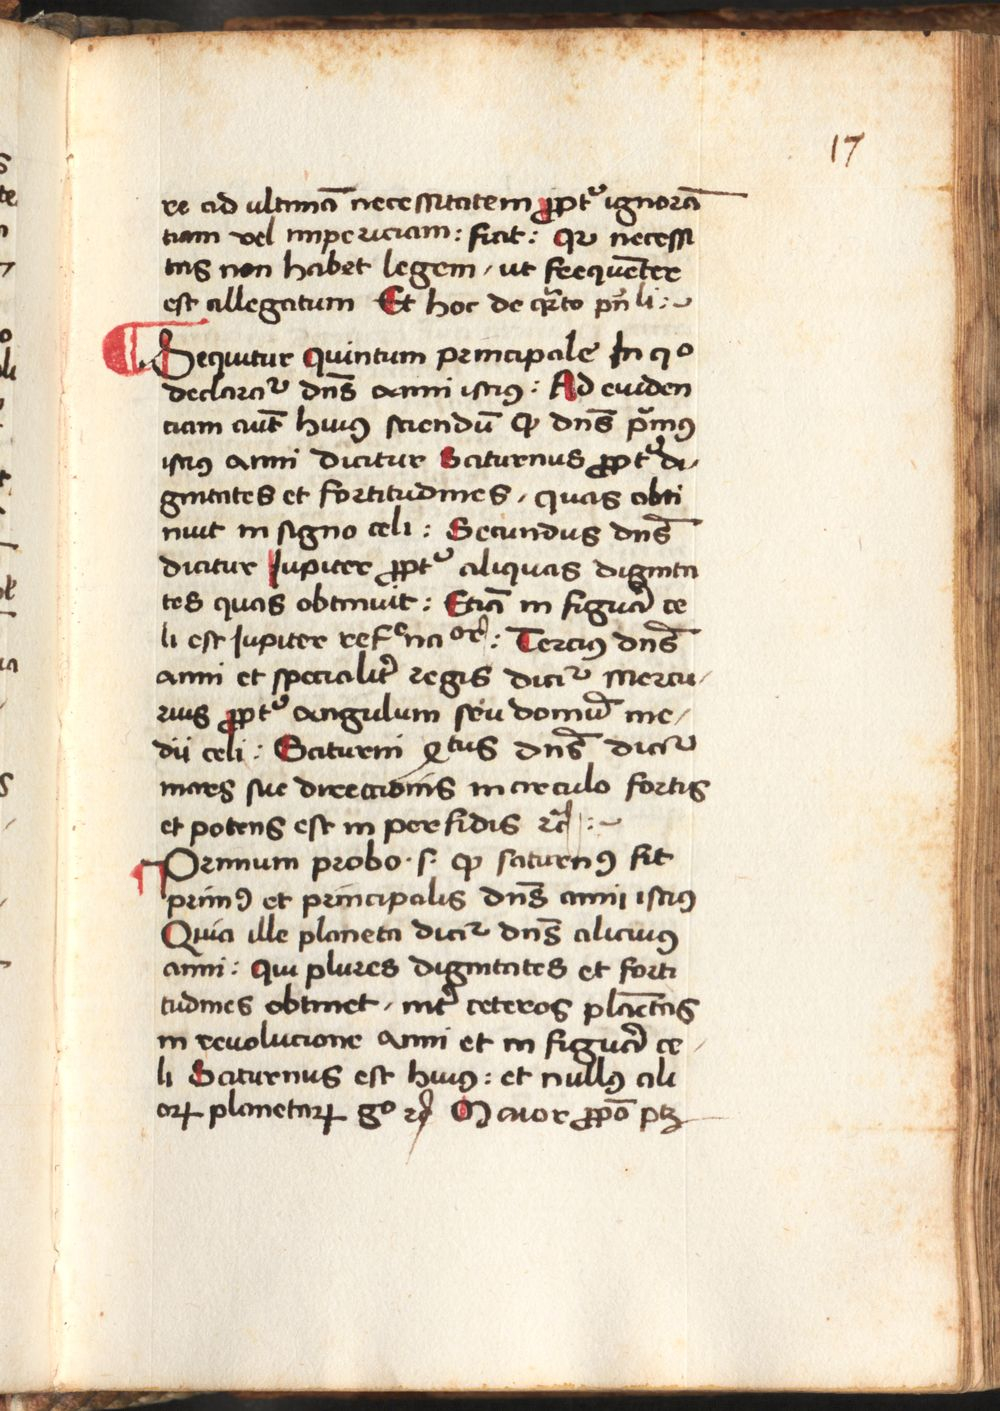 17
re ad ultimā necessitatem ꝓptᵉ ignorā
tiam vel impericiam : ficit : Qꝛ necessi
tas non habet legem / ut frequēter
est allegatum Et hoc de qᵃrto pn̄li :
Sequitur Quintum principale In qº
declaratᵘ dn̄s anni istiꝰ : Ad eviden
ciam aut̄ huiꝰ sciendū ꝙ dn̄s pⁱmꝰ
istiꝰ anni dicitur Saturnus ꝓptᵉ di /
gnitates et fortitudines / quas obti
nuit in signo celi : Secundus dn̄s
dicitur Jupiter ꝓptᵉ aliquas dignita
tes quas obtinuit : Etiā in figura ce
li est Jupiter
Terciꝰ dn̄s
anni et specialitᵉ regis dicitᵘ Mercu /
rius ꝓptᵉ angulum seu domū me /
dii celi : Saturni qᵃrtus dn̄s dicitᵘ
mars sue direccionis in circulo fortis
et potens est in perfidis ⁊c̄ :
Primum probo · s · ꝙ saturnꝰ sit
primꝰ et principalis dn̄s anni istiꝰ
Quia ille planeta dicitᵘ dn̄s alicuiꝰ
anni : Qui plures dignitates et forti
tudines obtinet / intᵉ ceteros planetas
in revolucione anni et in figura ce /
li Saturnus est huiꝰ : et nullꝰ ali
oꝝ planetaꝝ gº ⁊c̄ Maior ꝓpō ptꝫ